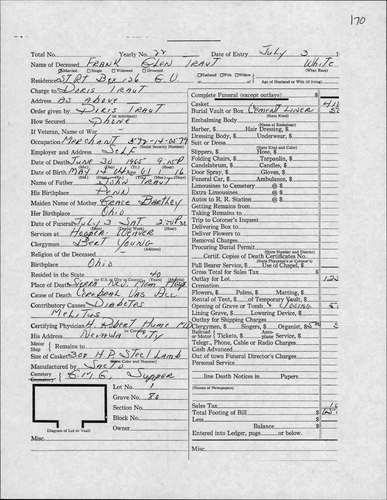 170
Total No. Yearly No. 72 Date of Entry July 3 1
Name of Deceased Frank Glen Traut White
Married Single Widowed Divorced (What Race)
Residence St Rt Box 136 G.V. Husband Wife Widow
Age of Husband or Wife (if living)
Charge to Doris Traut
Address as above
Order given by Doris Traut
How Secured Phone
If Veteran, Name of War
Occupation Merchant (Social Security Number)
Employer Self
Date of Death June 30 1965 9 P.M.
Date of Birth May 14 04 Age 61 1 16
Name of Father John Traut
His Birthplace Penn
Maiden Name of Mother Grace
Her Birthplace Ohio
Date of Funeral July 3 Sat 2:30 P.M.
Services at Hooper-Weaver
Clergyman Bert Young
Religion of the Deceased
Birthplace Ohio
Resided in the State 40
Place of Death Sierra Nev. Mem Hosp
Cause of Death Cerebral Vas Acc
Contributory Causes Diabetes
Melitus
Certifying Physician H Robert Hume MD
His Address Nevada City
Motor Ship Remains to
Size of Casket H.P. Steel Lamb
Manufactured by Sacto
Cemetery Crematory
Lot No. 1
Grave No. 80
Section No.
Block No.
Owner
Diagram of Lot or Vault
Misc.
Complete Funeral (except outlays) $
Casket
Burial Vault or Box Cement Liner
(State Kind)
Embalming Body
(Name of Embalmer)
Barber, $ Hair Dressing, $
Dressing Body, $ Underwear, $
Suit or Dress
(State Kind and Color)
Slippers, $ Hose, $
Folding Chairs, $ Tarpaulin, $
Candelabrum, $ Candles, $
Door Spray, $ Gloves, $
Funeral Car, $ Ambulance, $
Limousines to Cemetery @ $
Extra Limousines @ $
Autos to R. R. Station @ $
Getting Remains from
Taking Remains to
Trip to Coroner's Inquest
Delivering Box to
Deliver Flowers to
Removal Charges
Procuring Burial Permit
Certif. Copies of Death Certificates No.
Pall Bearer Service, $ Use of Chapel, $
Gross Total for Sales Tax $
Outlay for Lot
Cremation
Flowers, $ Palms, $ Matting, $
Rental of Tent, $ of Temporary Vault, $
Opening of Grave or Tomb $
Lining Grave, $ Lowering Device, $
Outlay for Shipping Charges
Clergymen, $ Singers, $ Organist, $
Railroad or Motor Tickets, $ plane Service, $
Telegr., Phone, Cable or Radio Charges
Cash Advanced
Out of town Funeral Director's Charges
Personal Service
line Death Notices in Papers
(Names of Newspapers)
Sales Tax
Total Footing of Bill $
Less
Balance $
Entered into Ledger, page or below.
Misc.